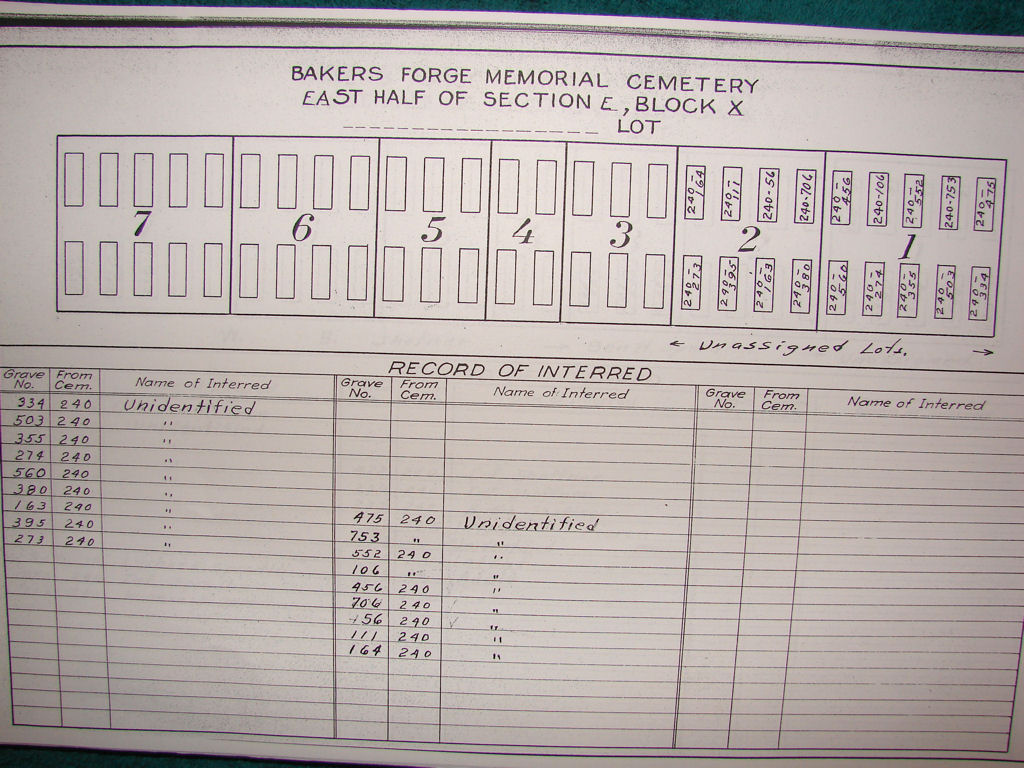 BAKERS FORGE MEMORIAL CEMETERY
EAST HALF OF SECTION E, BLOCK X
LOT
7 6 5 4 3 2 1
240-164 240-111 240-56 240-706 240-456 240-106 240-552 240-753 240-475
240-273 240-395 240-163 240-380 240-560 240-274 240-355 240-503 240-334
← Unassigned Lots. →
RECORD OF INTERRED
Grave No. From Cem. Name of Interred Grave No. From Cem. Name of Interred Grave No. From Cem. Name of Interred
334 240 Unidentified
503 240 "
355 240 "
274 240 "
560 240 "
380 240 "
163 240 "
395 240 "
273 240 "
475 240 Unidentified
753 " "
552 240 "
106 " "
456 240 "
706 240 "
56 240 "
111 240 "
164 240 "